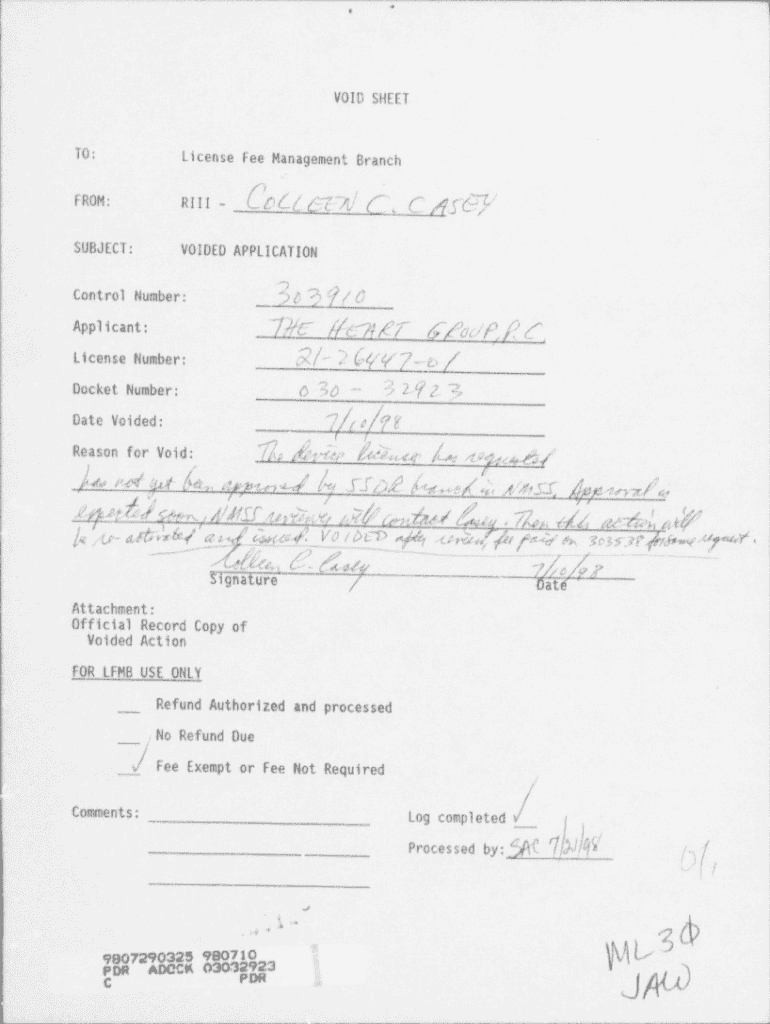 VOID SHEET
TO: License Fee Management Branch
FROM: RIII - COLLEEN C. CASEY
SUBJECT: VOIDED APPLICATION
Control Number: 303910
Applicant: THE HEART GROUP, P.C.
License Number: 21-26447-01
Docket Number: 030-32923
Date Voided: 7/10/98
Reason for Void: The device licensee has requested
has not yet been approved by SSDR branch in NMSS. Approval is
expected soon, NMSS reviewer will contact Casey. Then this action will
be re-activated and issued. VOIDED after review, fee paid on 303538 for same request.
Colleen C. Casey 7/10/98
Signature Date
Attachment:
Official Record Copy of
Voided Action
FOR LFMB USE ONLY
Refund Authorized and processed
No Refund Due
✓ Fee Exempt or Fee Not Required
Comments:
Log completed ✓
Processed by: SAC 7/21/98
9807290325 980710
PDR ADOCK 03032923
C PDR
ML 30
JAW